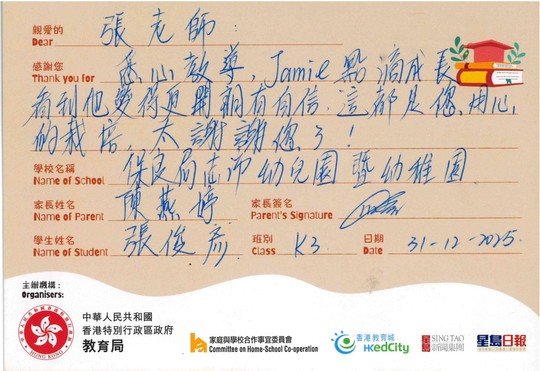 親愛的
Dear 張老師：
感謝您
Thank you for 悉心教導，Jamie點滴成長
看到他變得更開朗有自信，這都是您用心
的栽培，太謝謝您了！
學校名稱
Name of School 保良局志沛幼兒園暨幼稚園
家長姓名
Name of Parent 陳燕婷 家長簽名 Parent's Signature
學生姓名
Name of Student 張俊彥 班別 Class K3 日期 Date 31-12-2025
主辦機構：
Organisers:
HONG KONG
中華人民共和國
香港特別行政區政府
教育局
家庭與學校合作事宜委員會
Committee on Home-School Co-operation
香港教育城
HKedCity
星島 SING TAO
新聞集團
星島日報